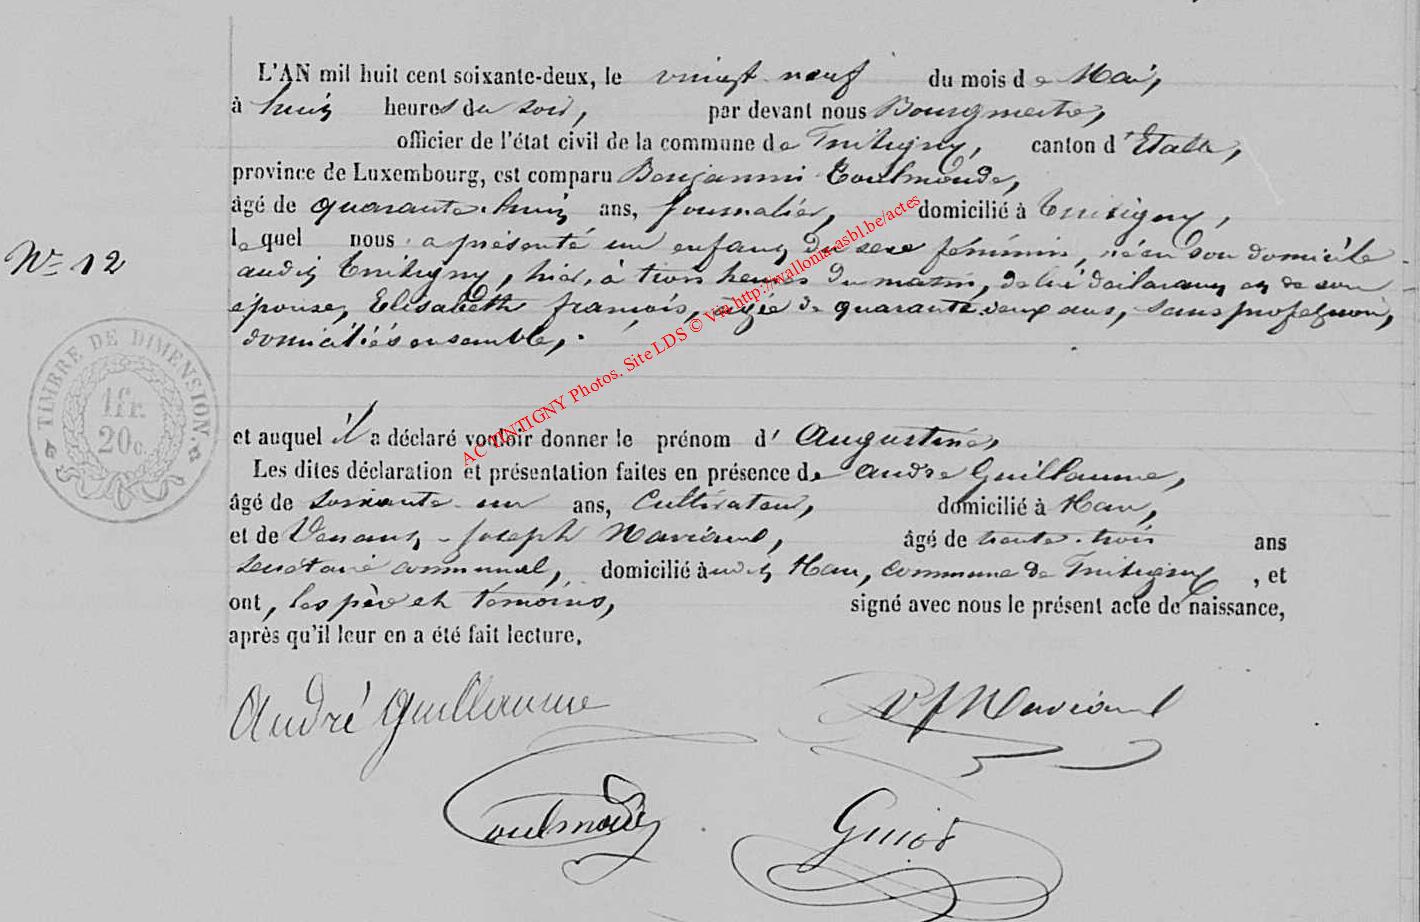 L'AN mil huit cent soixante-deux, le vingt neuf du mois de Mai,
à huit heures du soir, par devant nous Bourgmestre,
officier de l'état civil de la commune de Tintigny, canton d'Etalle,
province de Luxembourg, est comparu Benjamin Toulmonde,
âgé de quarante-huit ans, journalier, domicilié à Tintigny,
lequel nous a présenté un enfant du sexe féminin, né en son domicile
audit Tintigny, hier, à trois heures du matin, de lui déclarant et de son
épouse, Elisabeth François, agée de quarante deux ans, sans profession,
domiciliés ensemble,
N° 12
TIMBRE DE DIMENSION.
1fr.
20c.
et auquel il a déclaré vouloir donner le prénom d'Augustine,
Les dites déclaration et présentation faites en présence de André Guillaume,
âgé de soixante un ans, Cultivateur, domicilié à Han,
et de Venant-Joseph, âgé de trente-trois ans
secrétaire communal, domicilié audit Han, commune de Tintigny, et
ont, les père et témoins, signé avec nous le présent acte de naissance,
après qu'il leur en a été fait lecture.
André Guillaume
Toulmonde
AC TINTIGNY Photos. Site LDS © Via http://wallonia-asbl.be/actes